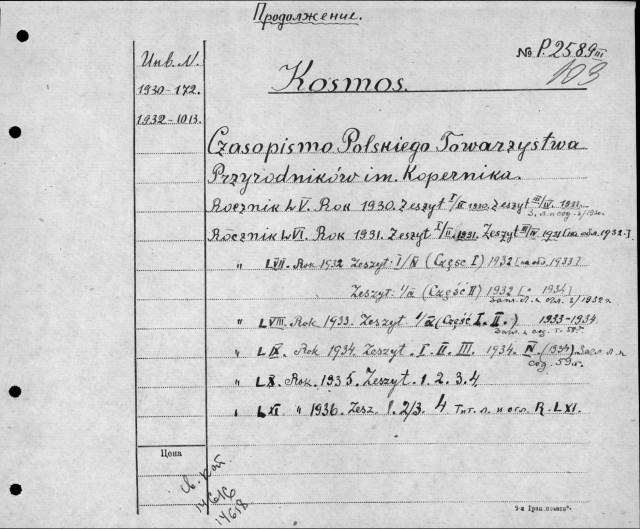 Продолжение.
№ P. 2589 III
103
Инв. N.
Kosmos.
1930-172.
1932-1013.
Czasopismo Polskiego Towarzystwa
Przyrodników im. Kopernika.
Rocznik LV. Rok 1930. Zeszyt I/II 1930. Zeszyt III/IV. 1931.
Rocznik LVI. Rok 1931. Zeszyt I/II. 1931. Zeszyt III/IV 1931 [на обл. 1932.]
" LVII. Rok 1932 Zeszyt: I/IV (Część I) 1932 [на обл. 1933]
Zeszyt. (Część II) 1932 [" 1934]
" LVIII. Rok 1933. Zeszyt. (Część I. II.) 1933-1934.
" LIX. Rok 1934. Zeszyt. I. II. III. 1934. IV (1934) Загл. л. и
сод. 59 т.
" LX. Rok. 1935. Zeszyt. 1. 2. 3. 4.
" LXI " 1936. Zesz. 1. 2/3. 4 Тит. л. и огл. R. LXI.
Цена
14616
14618